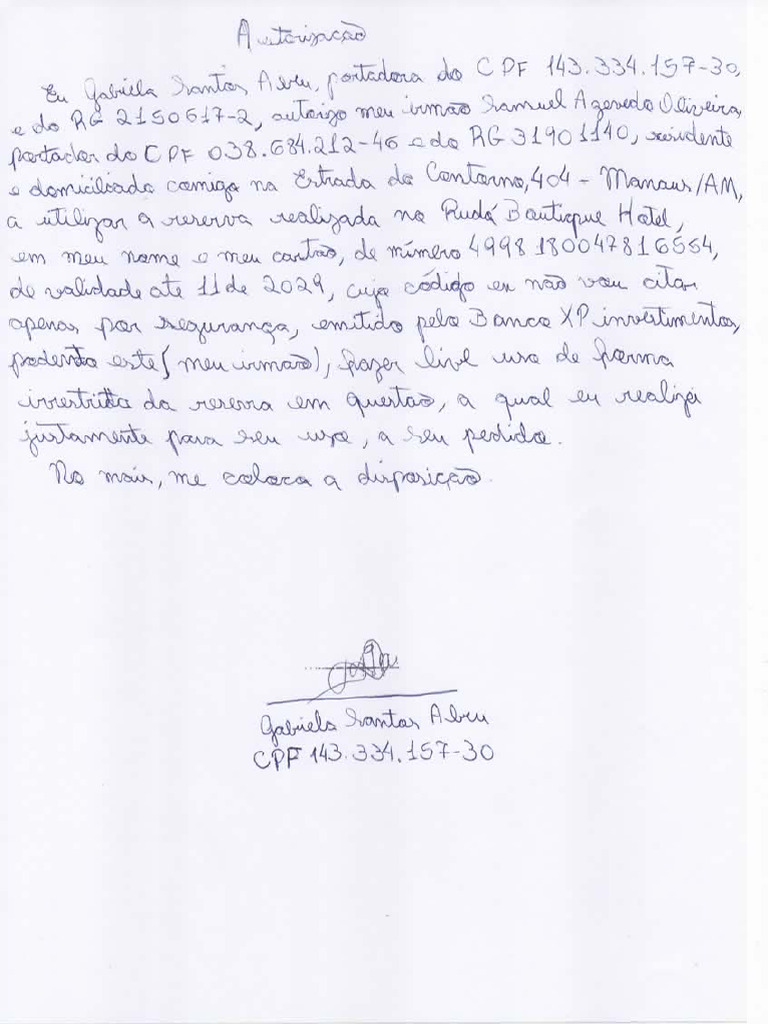 Autorização
Eu Gabriela Santos Abreu, portadora do CPF 143.334.157-30,
e do RG 2150617-2, autorizo meu irmão Samuel Azevedo Oliveira,
portador do CPF 038.684.212-46 e do RG 31901140, residente
e domiciliado comigo na Estrada do Contorno, 404 - Manaus/AM,
a utilizar a reserva realizada no Rudá Boutique Hotel,
em meu nome e meu cartão, de número 4998180047816554,
de validade até 11 de 2029, cujo código eu não vou citar
apenas por segurança, emitido pelo Banco XP investimentos,
podendo este (meu irmão), fazer livre uso de forma
irrestrita da reserva em questão, a qual eu realizei
justamente para seu uso, a seu pedido.
No mais, me coloco a disposição.
Gabriela Santos Abreu
CPF 143.334.157-30